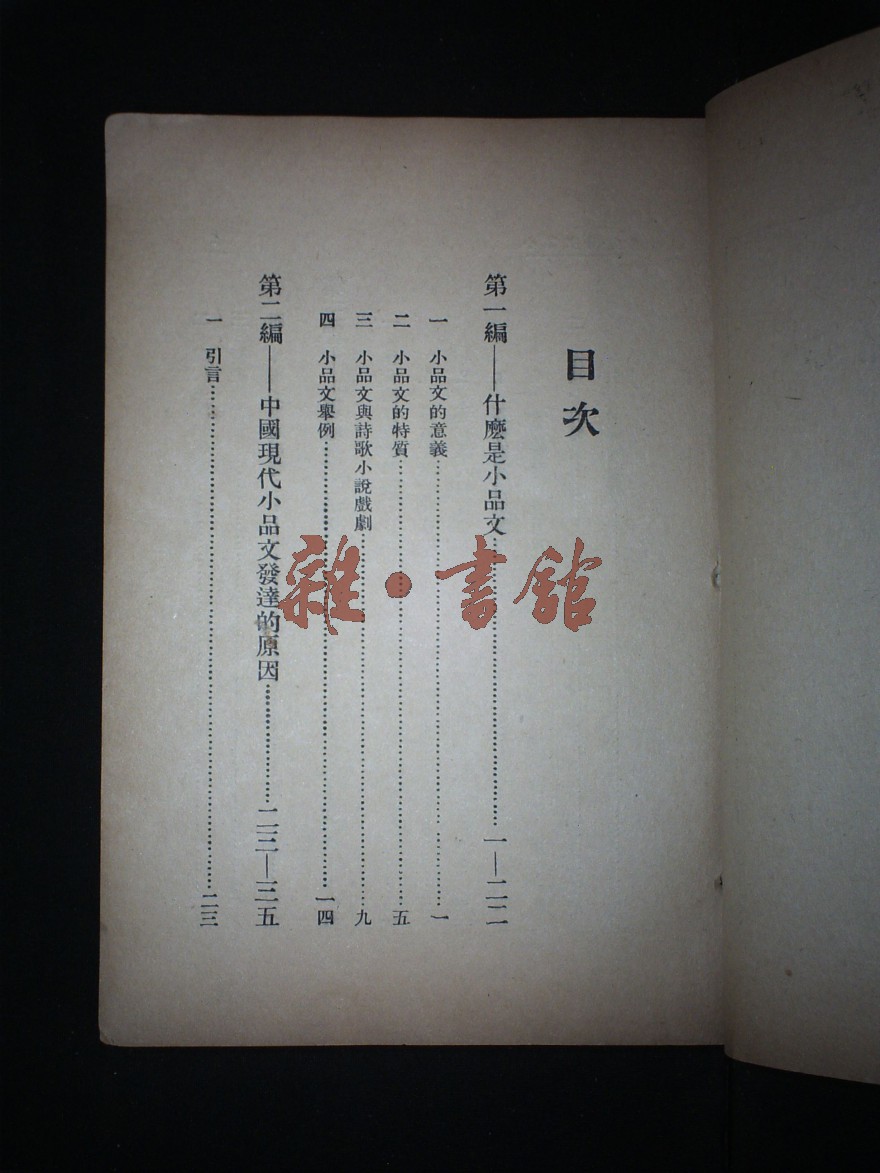 目次
第一編——什麽是小品文……一—二二
一 小品文的意義……一
二 小品文的特質……五
三 小品文與詩歌小說戲劇……九
四 小品文舉例……一四
第二編——中國現代小品文發達的原因……二三—三五
一 引言……二三
雜·書館